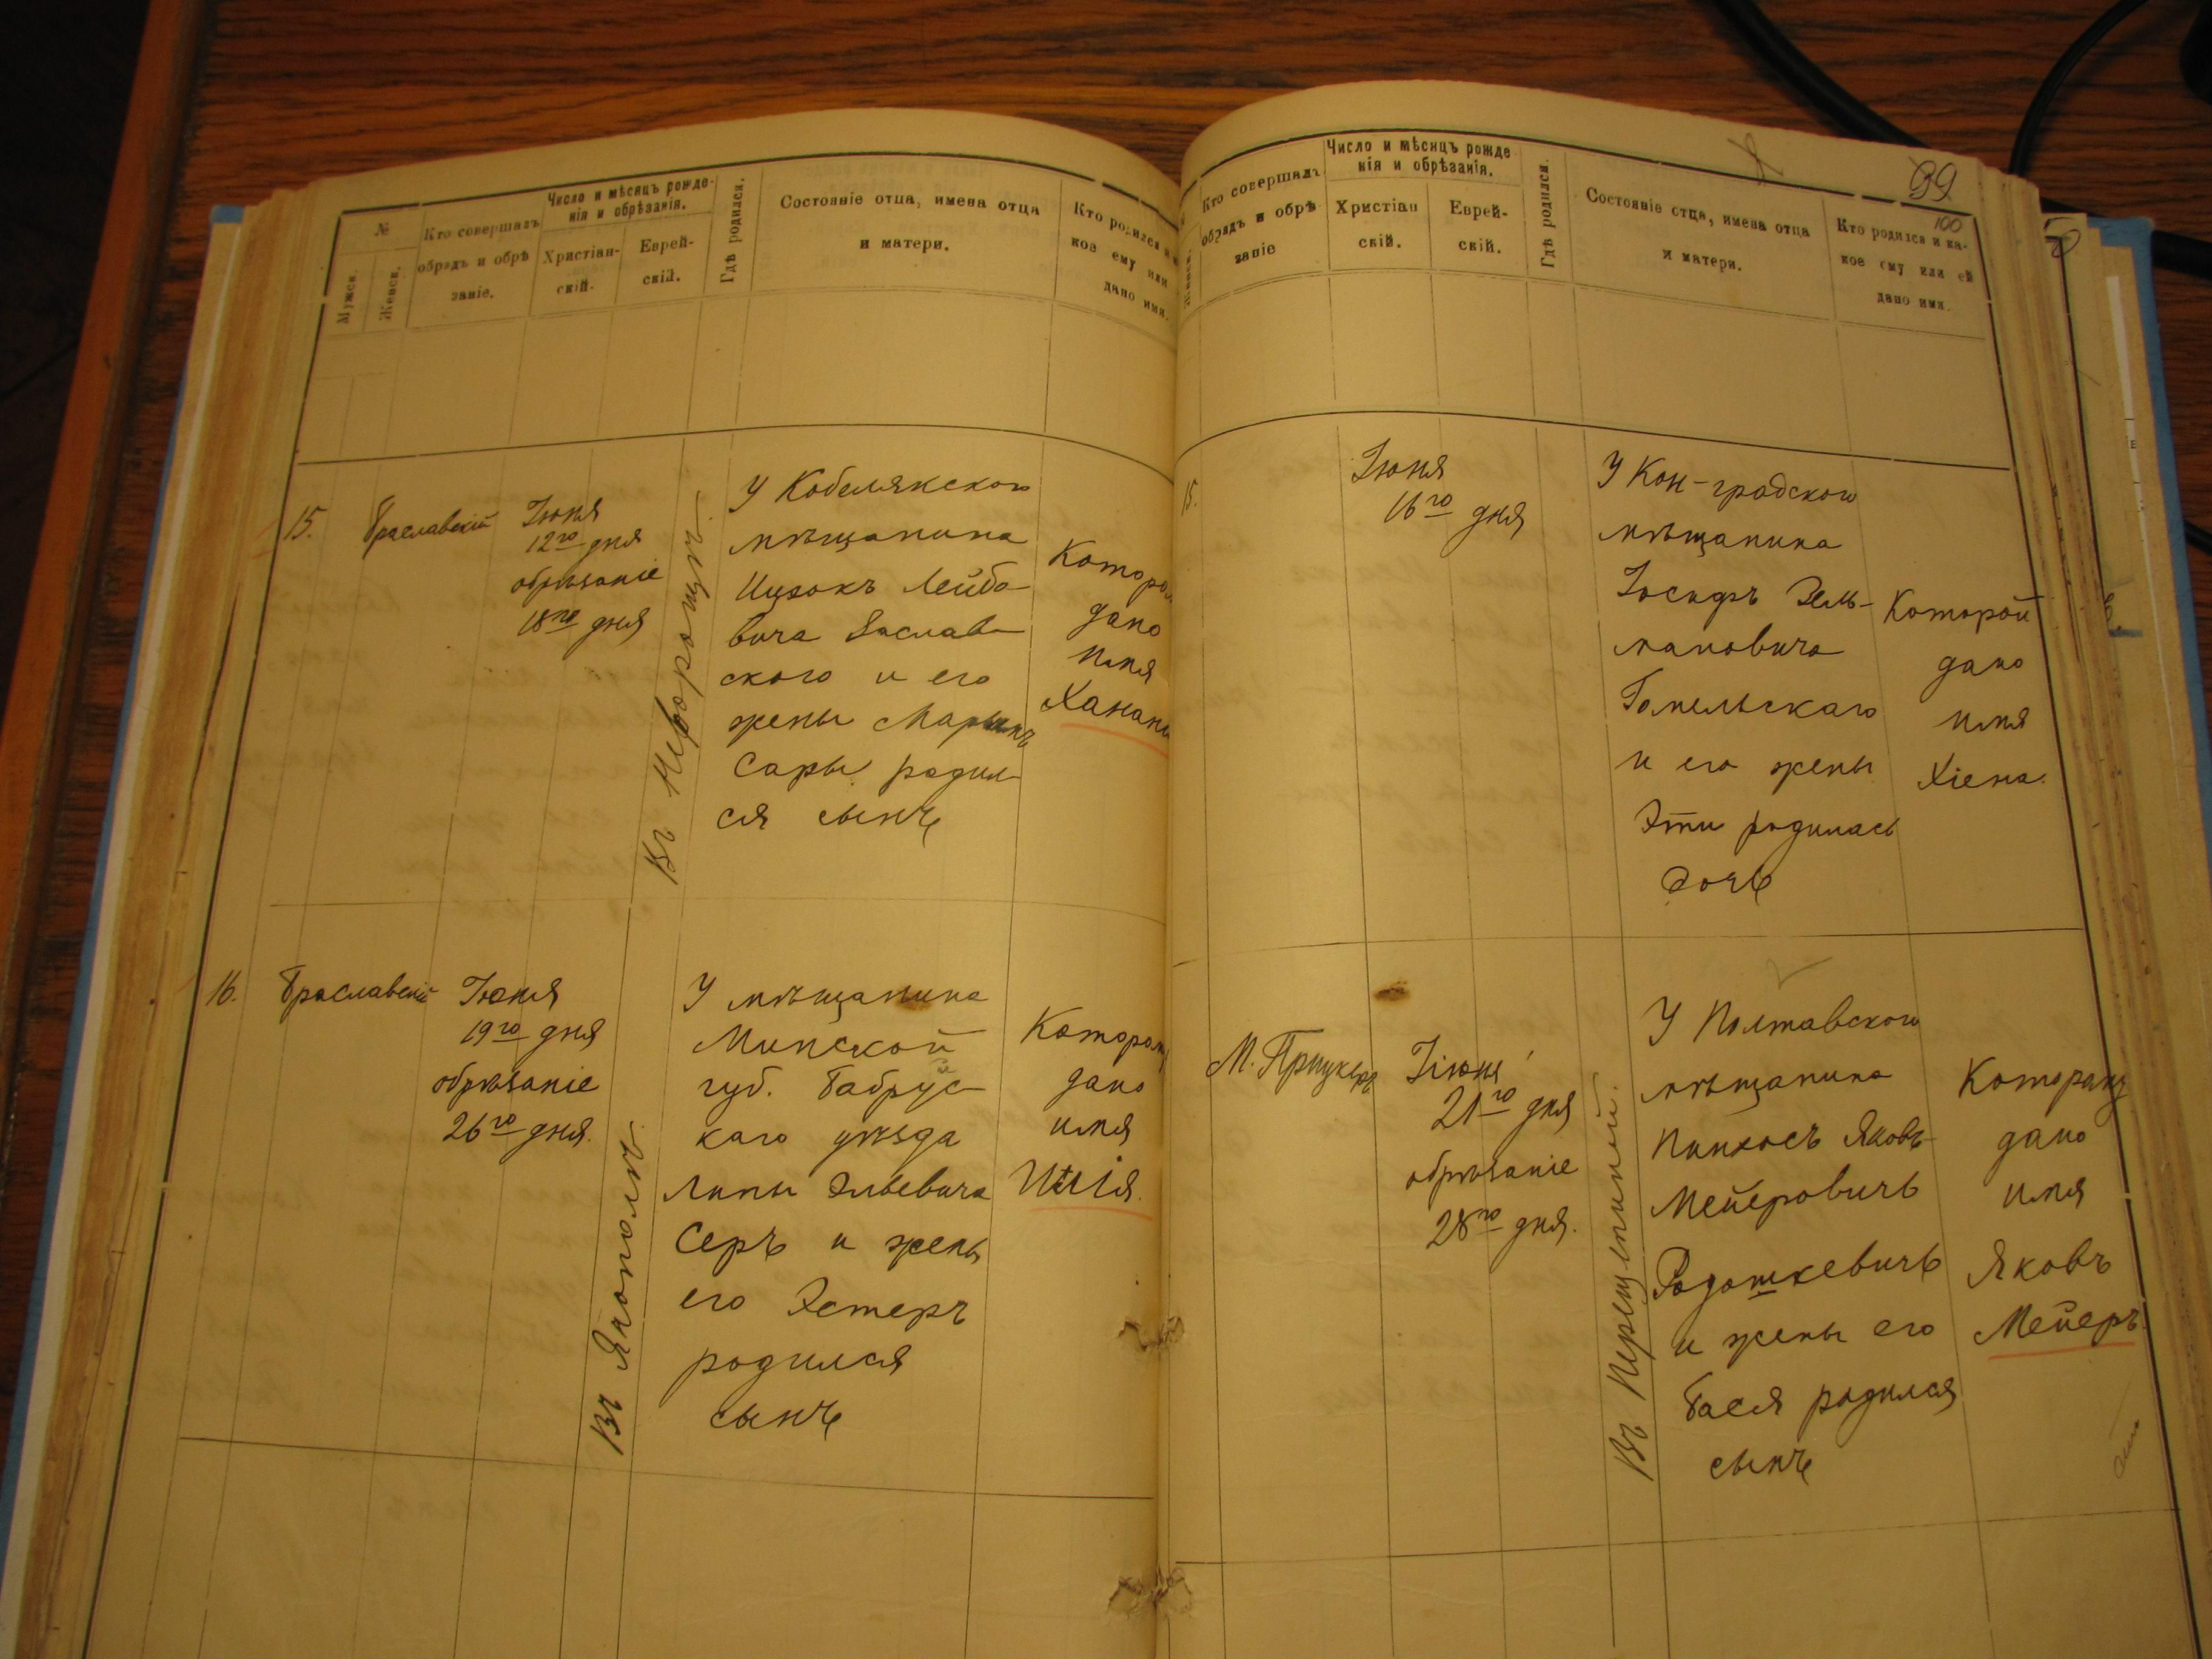 №
Мужск.
Женск.
Кто совершалъ
обрядъ и обрѣ
заніе.
Число и мѣсяцъ рожде-
нія и обрѣзанія.
Христіан-
скій.
Еврей-
скій.
Гдѣ родился.
Состояніе отца, имена отца
и матери.
Кто родился и
кое ему или
дано имя.
15.
Браславскій
Іюня
12го дня
обрѣзаніе
18го дня
Въ Нехворощи
У Кобелякского
мѣщанина
Ицхокъ Лейбо-
вича Заслав-
ского и его
жены
Сары родил-
ся сынъ
Котором
дано
имя
Ханани
16.
Браславскій
Іюня
19го дня
обрѣзаніе
26го дня.
Въ Якополѣ
У мѣщанина
Минской
губ. Бабрус-
каго уѣзда
Липы Эльевича
Серъ и жены
его Эстеръ
родился
сынъ
Котором
дано
имя
99
100
Женск.
Кто совершалъ
обрядъ и обрѣ
заніе
Число и мѣсяцъ рожде
нія и обрѣзанія.
Христіан
скій.
Еврей-
скій.
Гдѣ родился.
Состояніе отца, имена отца
и матери.
Кто родился и ка-
кое ему или ей
дано имя.
15.
Іюня
16го дня
У Кон-градского
мѣщанина
Іосифъ Зель-
мановича
Гомельскаго
и его жены
Эти родилась
дочь
Которой
дано
имя
Хіена.
М. Прицкеръ
Іюня
21го дня
обрѣзаніе
28го дня.
Въ Перещепиной.
У Полтавского
мѣщанина
Пинхосъ Яковъ-
Мейеровичъ
Радошкевичъ
и жены его
Бася родился
сынъ
Котораму
дано
имя
Яковъ
Мейеръ.